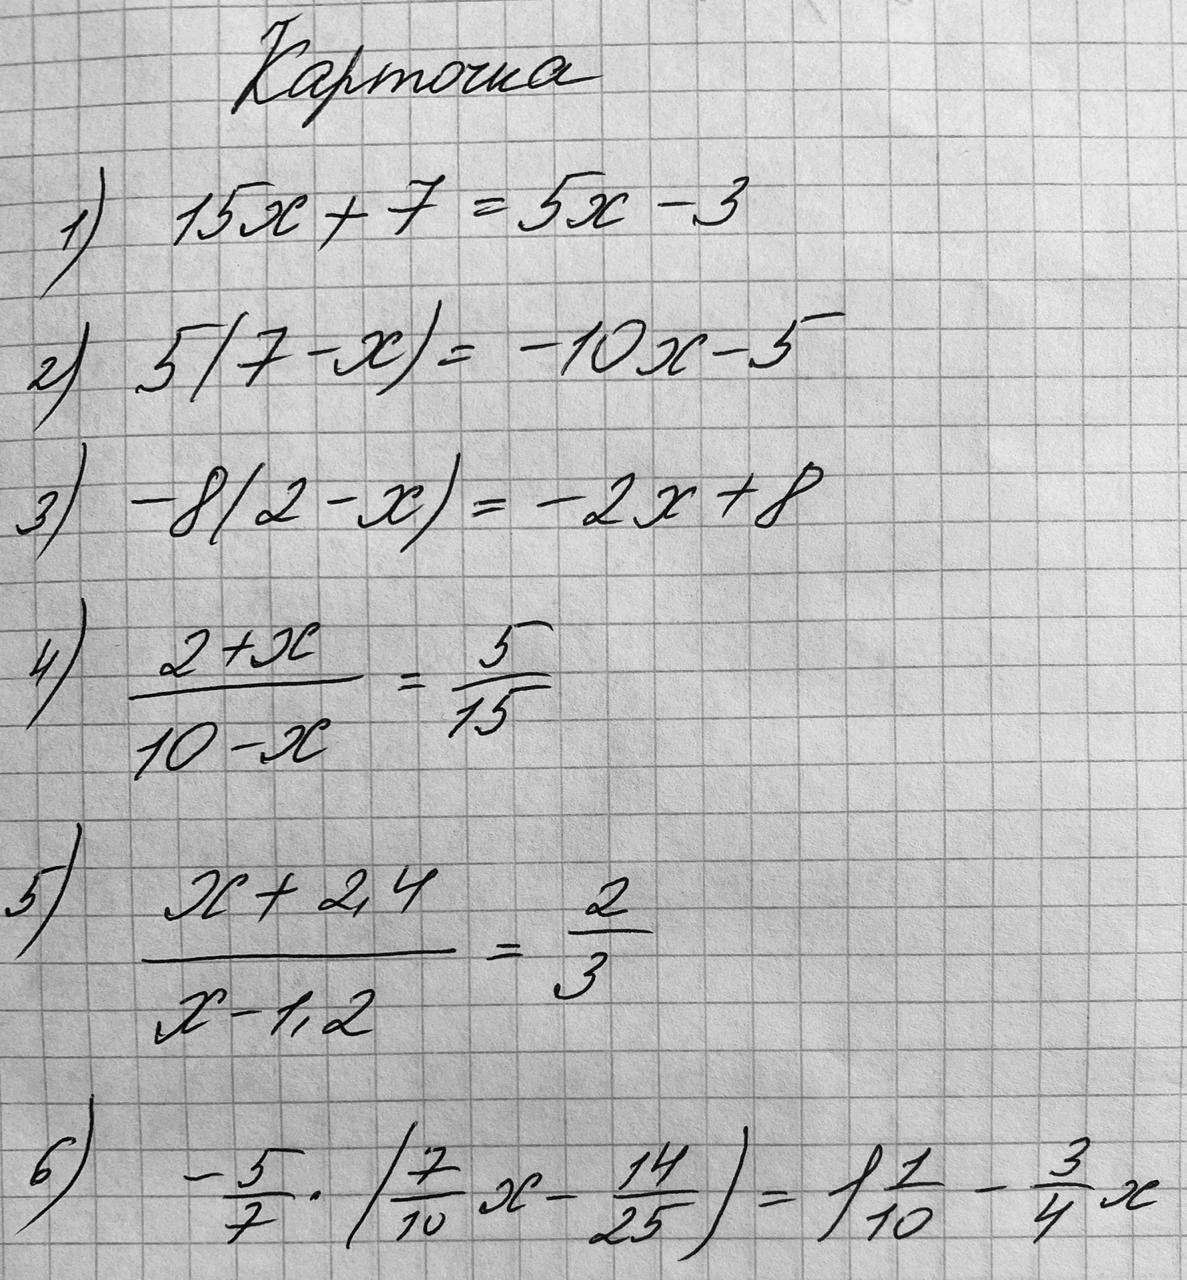 Карточка
1) 15x + 7 = 5x - 3
2) 5(7 - x) = -10x - 5
3) -8(2 - x) = -2x + 8
4) \frac{2+x}{10-x} = \frac{5}{15}
5) \frac{x+2,4}{x-1,2} = \frac{2}{3}
6) -\frac{5}{7} \cdot (\frac{7}{10}x - \frac{14}{25}) = 1\frac{1}{10} - \frac{3}{4}x